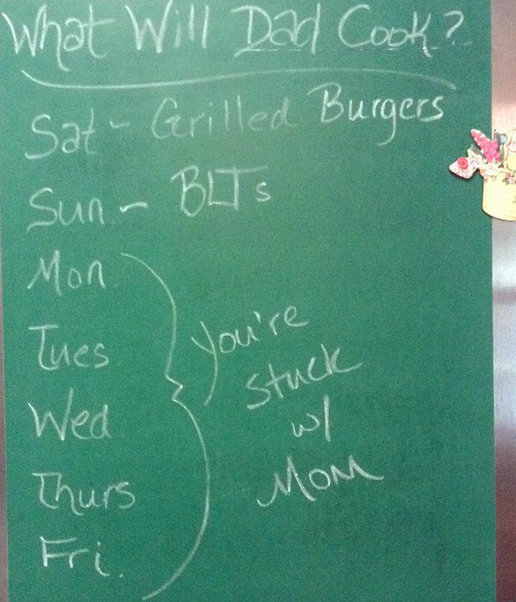 What Will Dad Cook?
Sat - Grilled Burgers
Sun - BLTs
Mon
Tues
Wed
Thurs
Fri.
You're
Stuck
w/
Mom